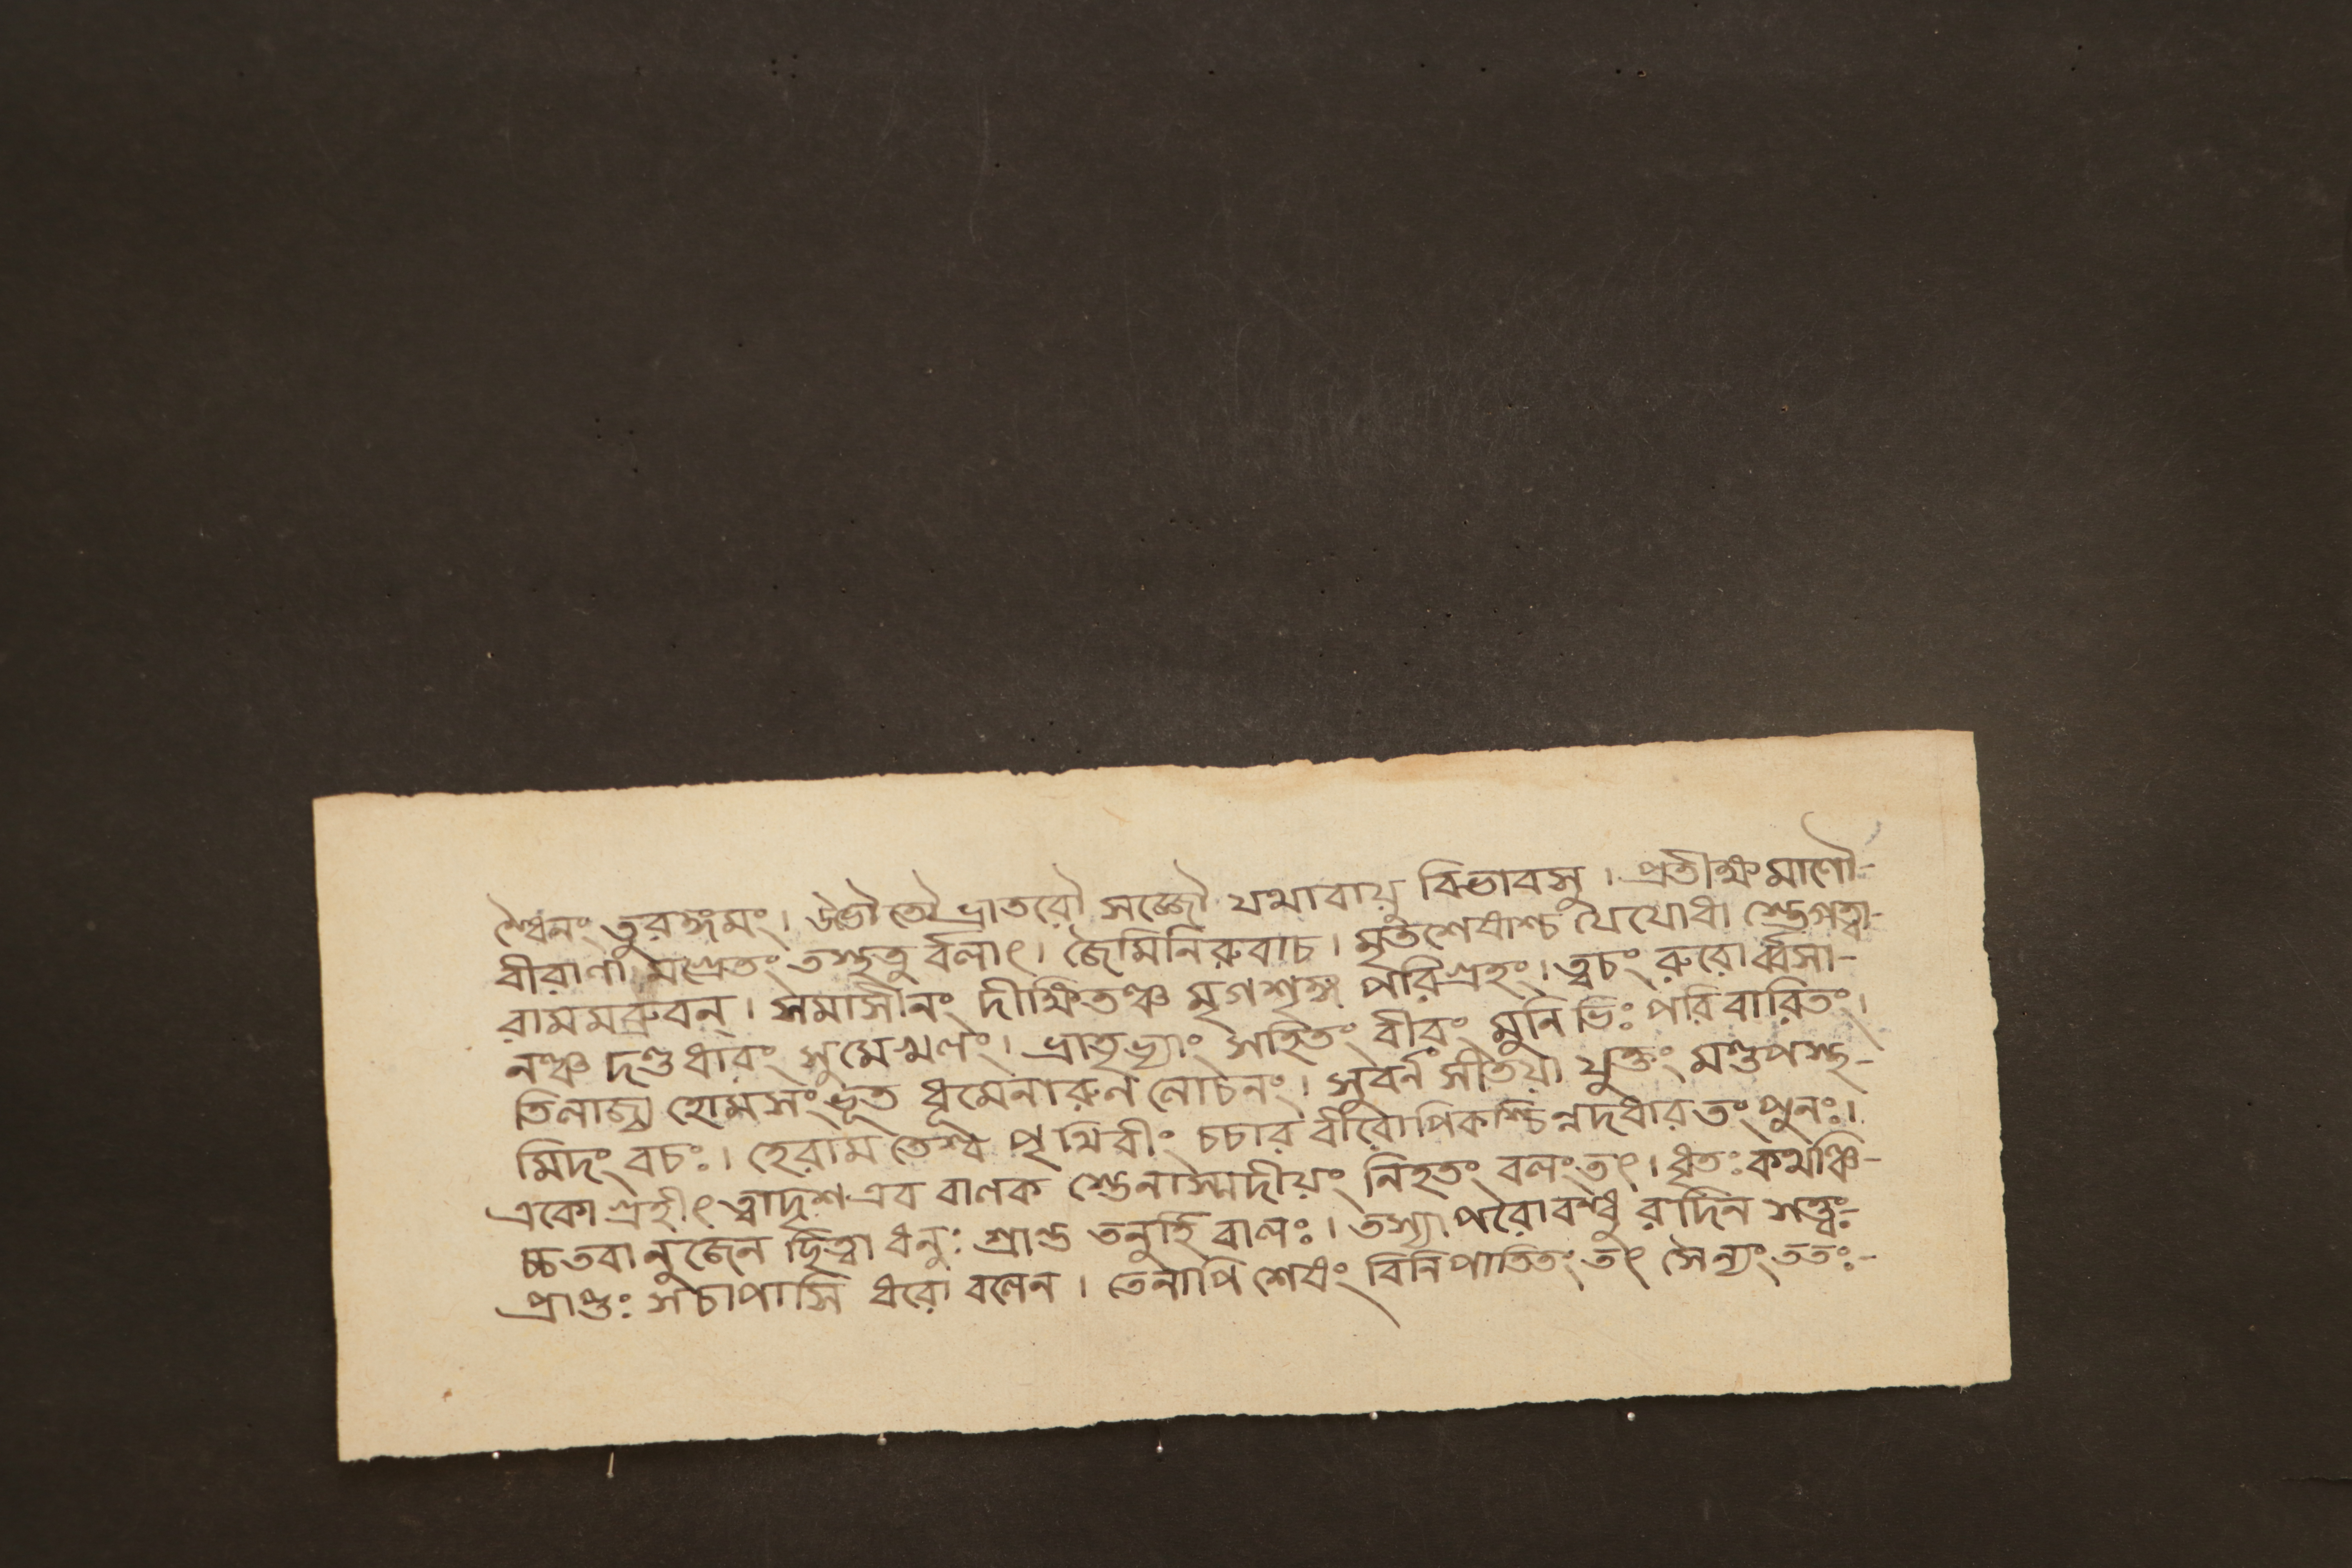 শ্চৈনং তুরঙ্গমং। উভৌ তৌ ভ্রাতরৌ সজ্জৌ যথাবায়ু বিভাবসু। প্রতীক্ষমাণৌ-
বীরাণা মশ্রেতং তস্থতু র্বলাৎ। জৈমিনিরুবাচ। মৃতশেষাশ্চ যৈযোধা স্তেগত্বা-
রামমব্রুবন্। সমাসীনং দীক্ষিতঞ্চ মৃগশৃঙ্গ পরিগ্রহং। ত্বচং রুরোর্ব্বসা-
নঞ্চ দণ্ডধারং সুমেখলং। ভ্রাতৃভ্যাং সহিতং বীরং মুনিভিঃ পরিবারিতং।
তিলাজ্য হোমসংভূত ধূমেনারুণ লোচনং। সুবর্ন সীতয়া যুক্তং মণ্ডপস্থ-
মিদং বচঃ। হেরাম তেশ্ব পৃথিবীং চচার বীরোপিকশ্চিন্নদধার তং পুনঃ।
একো গ্রহীৎ ত্বাদৃশ এব বালক স্তেনাস্মদীয়ং নিহতং বলং তৎ। ধৃতঃ কথঞ্চি-
চ্চ তবানুজেন ছিত্বা ধনুঃ শ্রান্ত তনুর্হি বালঃ। তস্যাপরোবন্ধু রদীন সত্ত্বঃ-
প্রাপ্তঃ সচাপাসি ধরো বলেন। তেনাপি শেষং বিনিপাতিতং তৎ সৈন্যং ততঃ-